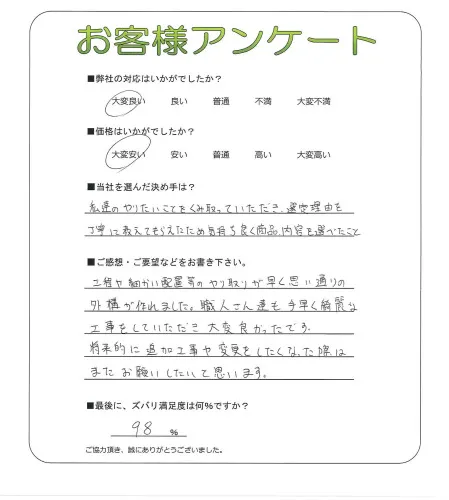 お客様アンケート
■弊社の対応はいかがでしたか？
大変良い 良い 普通 不満 大変不満
■価格はいかがでしたか？
大変安い 安い 普通 高い 大変高い
■当社を選んだ決め手は？
私達のやりたいことをくみ取っていただき、選定理由を
丁寧に教えてもらえたため気持ち良く商品、内容を選べたこと
■ご感想・ご要望などをお書き下さい。
工程や細かい配置等のやり取りが早く思い通りの
外構が作れました。職人さん達も手早く綺麗な
工事をしていただき大変良かったです。
将来的に追加工事や変更をしたくなった際は
またお願いしたいて思います。
■最後に、ズバリ満足度は何％ですか？
98 ％
ご協力頂き、誠にありがとうございました。